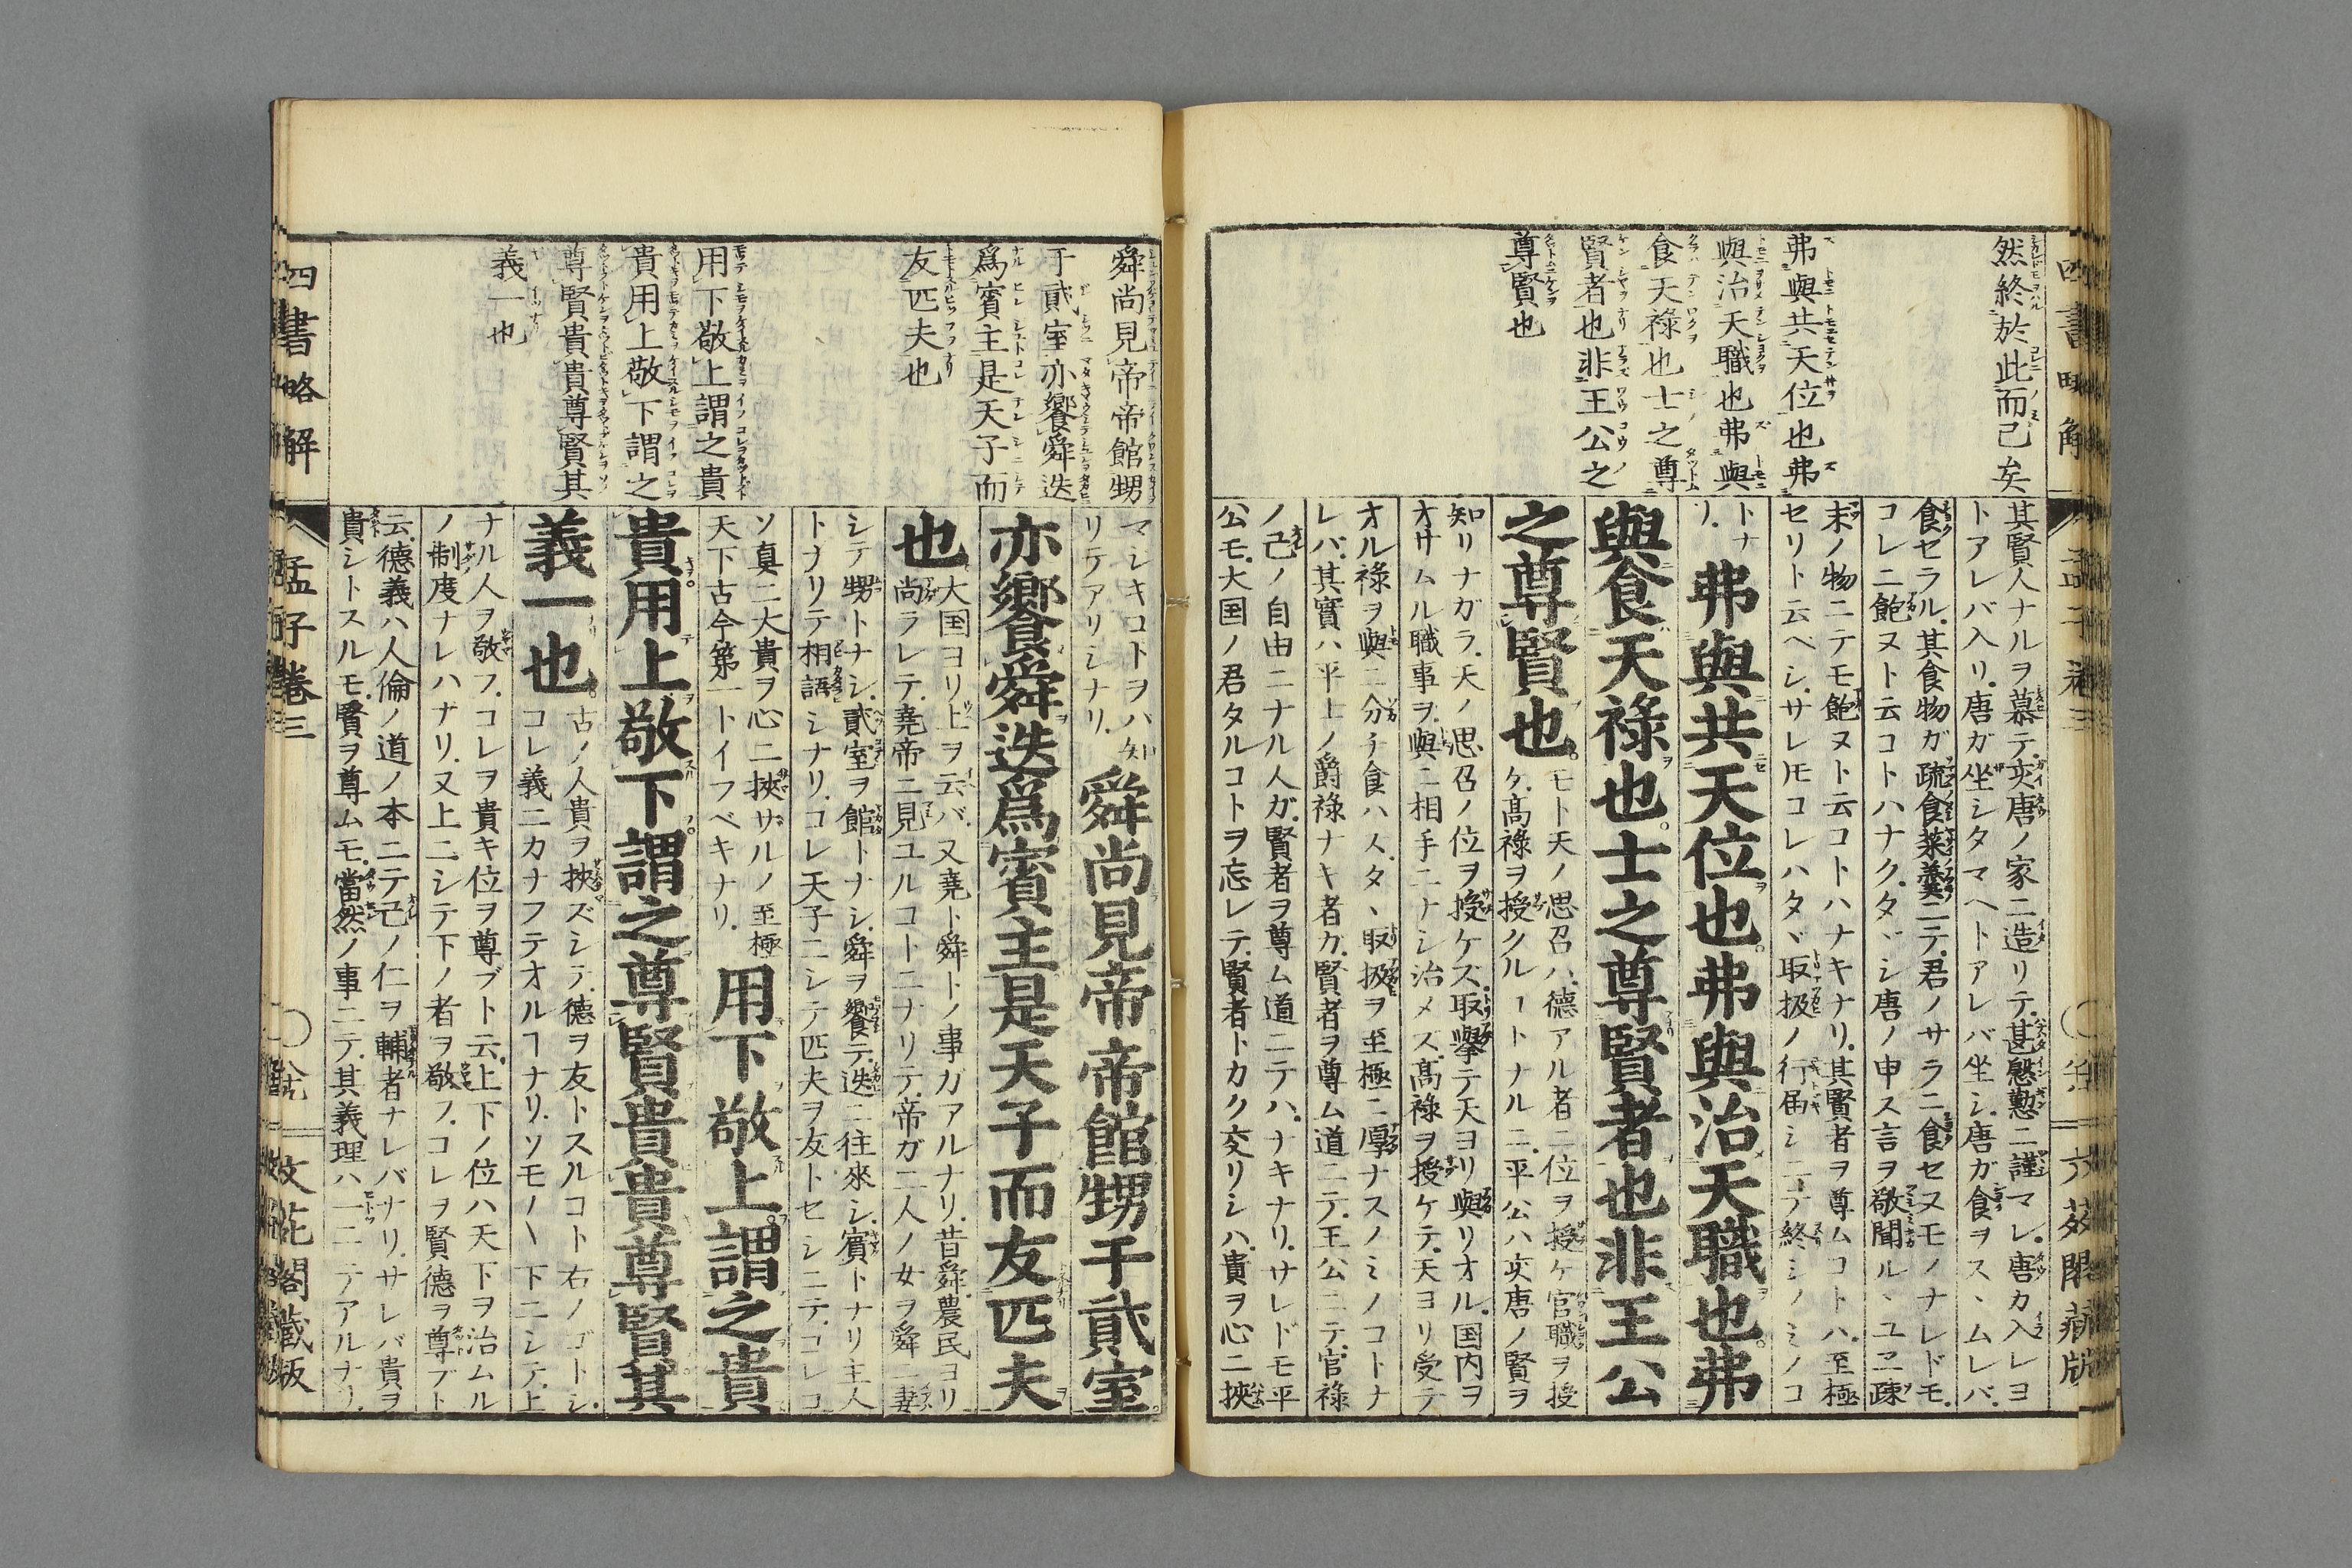 然終於此而已矣
弗與共天位也弗
與治天職也弗與
食天祿也士之尊
賢者也非王公之
尊賢也
其賢人ナルヲ慕テ亥唐ノ家ニ造リテ甚慇懃ニ謹マレ唐カ入レヨ
トアレバ入リ唐ガ坐シタマヘトアレバ坐シ唐ガ食ヲスヽムレバ
食セラル其食物ガ疏食菜羹ニテ君ノサラニ食セヌモノナレドモ
コレニ飽ヌト云コトハナクタヾシ唐ノ申ス言ヲ敬聞ルヽユヱ疎
末ノ物ニテモ飽ヌト云コトハナキナリ其賢者ヲ尊ムコトハ至極
セリト云ベシサレ𪜈コレハタヾ取扱ノ行届シニテ終シノミノコ
トナリ 弗與共天位也弗與治天職也弗
與食天祿也士之尊賢者也非王公
之尊賢也 モト天ノ思召ハ德アル者ニ位ヲ授ケ官職ヲ授
ケ高祿ヲ授クルヿトナルニ平公ハ亥唐ノ賢ヲ
知リナガラ天ノ思召ノ位ヲ授ケス取擧テ天ヨリ與リオル国内ヲ
オサムル職事ヲ與ニ相手ニナシ治メス高祿ヲ授ケテ天ヨリ受テ
オル祿ヲ與ニ分チ食ハスタヽ取扱ヲ至極ニ厚ナスノミノコトナ
レバ其實ハ平士ノ爵祿ナキ者カ賢者ヲ尊ム道ニテ王公ニテ官祿
ノ己ノ自由ニナル人ガ賢者ヲ尊ム道ニテハナキナリサレドモ平
公モ大国ノ君タルコトヲ忘レテ賢者トカク交リシハ貴ヲ心ニ挾
四書略解
孟子卷三
文花閣藏版
舜尚見帝帝館甥
于貳室亦饗舜迭
爲賓主是天子而
友匹夫也
用下敬上謂之貴
貴用上敬下謂之
尊賢貴貴尊賢其
義一也
マシキコトヲハ知
リテアリシナリ 舜尚見帝帝館甥于貳室
亦饗舜迭爲賓主是天子而友匹夫
也 大国ヨリ上ヲ云バ又堯ト舜トノ事ガアルナリ昔舜農民ヨリ
尚ラレテ堯帝ニ見ユルコトニナリテ帝ガ二人ノ女ヲ舜ニ妻
シテ甥トナシ貳室ヲ館トナシ舜ヲ饗テ迭ニ往來シ賓トナリ主人
トナリテ相語シナリコレ天子ニシテ匹夫ヲ友トセシニテコレコ
ソ真ニ大貴ヲ心ニ挾サルノ至極
天下古今第一トイフベキナリ 用下敬上謂之貴
貴用上敬下謂之尊賢貴貴尊賢其
義一也 古ノ人貴ヲ挾ズシテ德ヲ友トスルコト右ノゴトシ
コレ義ニカナフテオルヿナリソモ〳〵下ニシテ上
ナル人ヲ敬フコレヲ貴キ位ヲ尊ブト云上下ノ位ハ天下ヲ治ムル
ノ制度ナレハナリ又上ニシテ下ノ者ヲ敬フコレヲ賢德ヲ尊ブト
云德義ハ人倫ノ道ノ本ニテ己ノ仁ヲ輔者ナレバナリサレバ貴ヲ
貴シトスルモ賢ヲ尊ムモ當然ノ事ニテ其義理ハ一ニテアルナリ
四書略解
孟子卷三
文花閣藏版